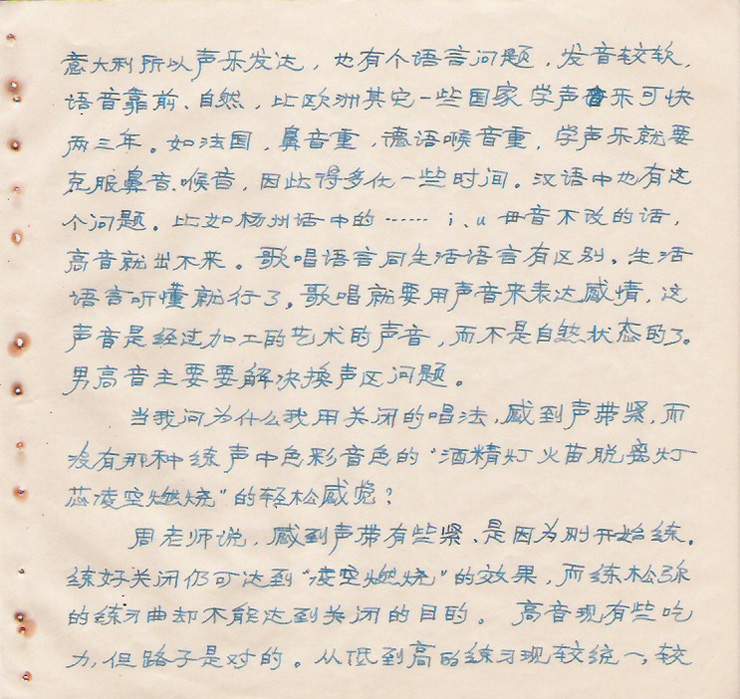 意大利所以声乐发达，也有个语言问题，发音较软，
语音靠前、自然，比欧洲其它一些国家学声乐可快
两三年。如法国，鼻音重，德语喉音重，学声乐就要
克服鼻音、喉音，因此得多化一些时间。汉语中也有这
个问题。比如杨州话中的…… i、u 母音不改的话，
高音就出不来。歌唱语言同生活语言有区别。生活
语言听懂就行了。歌唱就要用声音来表达感情，这
声音是经过加工的艺术的声音，而不是自然状态的了。
男高音主要要解决换声区问题。
当我问为什么我用关闭的唱法，感到声带紧，而
没有那种练声中色彩音色的“酒精灯火苗脱离灯
芯凌空燃烧”的轻松感觉？
周老师说，感到声带有些紧、是因为刚开始练。
练好关闭仍可达到“凌空燃烧”的效果，而练松弥
的练习曲却不能达到关闭的目的。高音现有些吃
力，但路子是对的。从低到高的练习现较统一，较